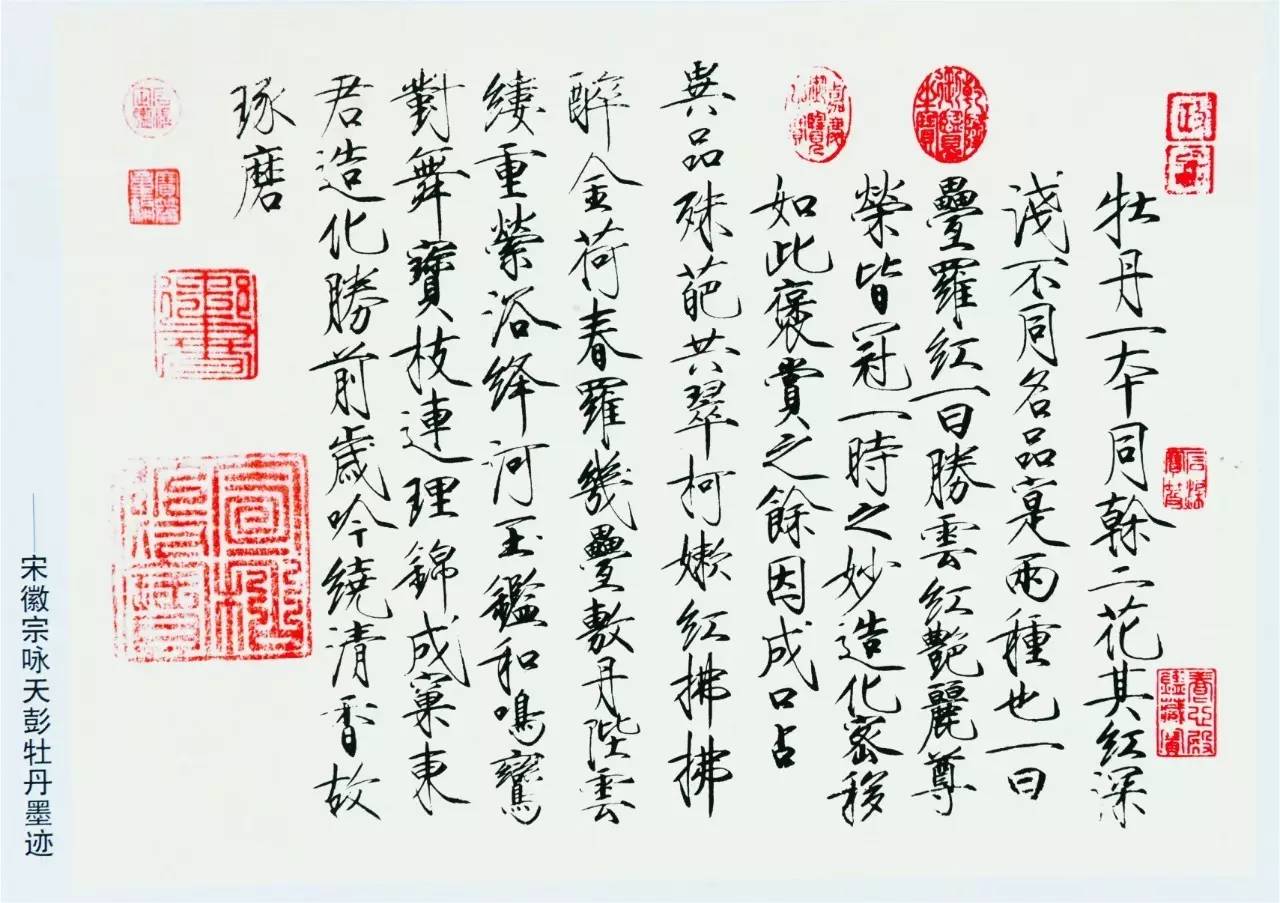 牡丹一本同榦二花其紅深
淺不同名品寔兩種也一曰
疊羅紅一曰勝雲紅艷麗尊
榮皆冠一時之妙造化密移
如此褒賞之餘因成口占
異品殊葩共翠柯嫰紅拂拂
醉金荷春羅幾疊敷丹陛雲
縷重縈浴絳河玉鑑和鳴鸞
對舞寶枝連理錦成窠東
君造化勝前歲吟繞清香故
琢磨
宋徽宗咏天彭牡丹墨迹
政
和
乾隆御覽之寶
嘉慶御覽之寶
御書
宣統御覽之寶